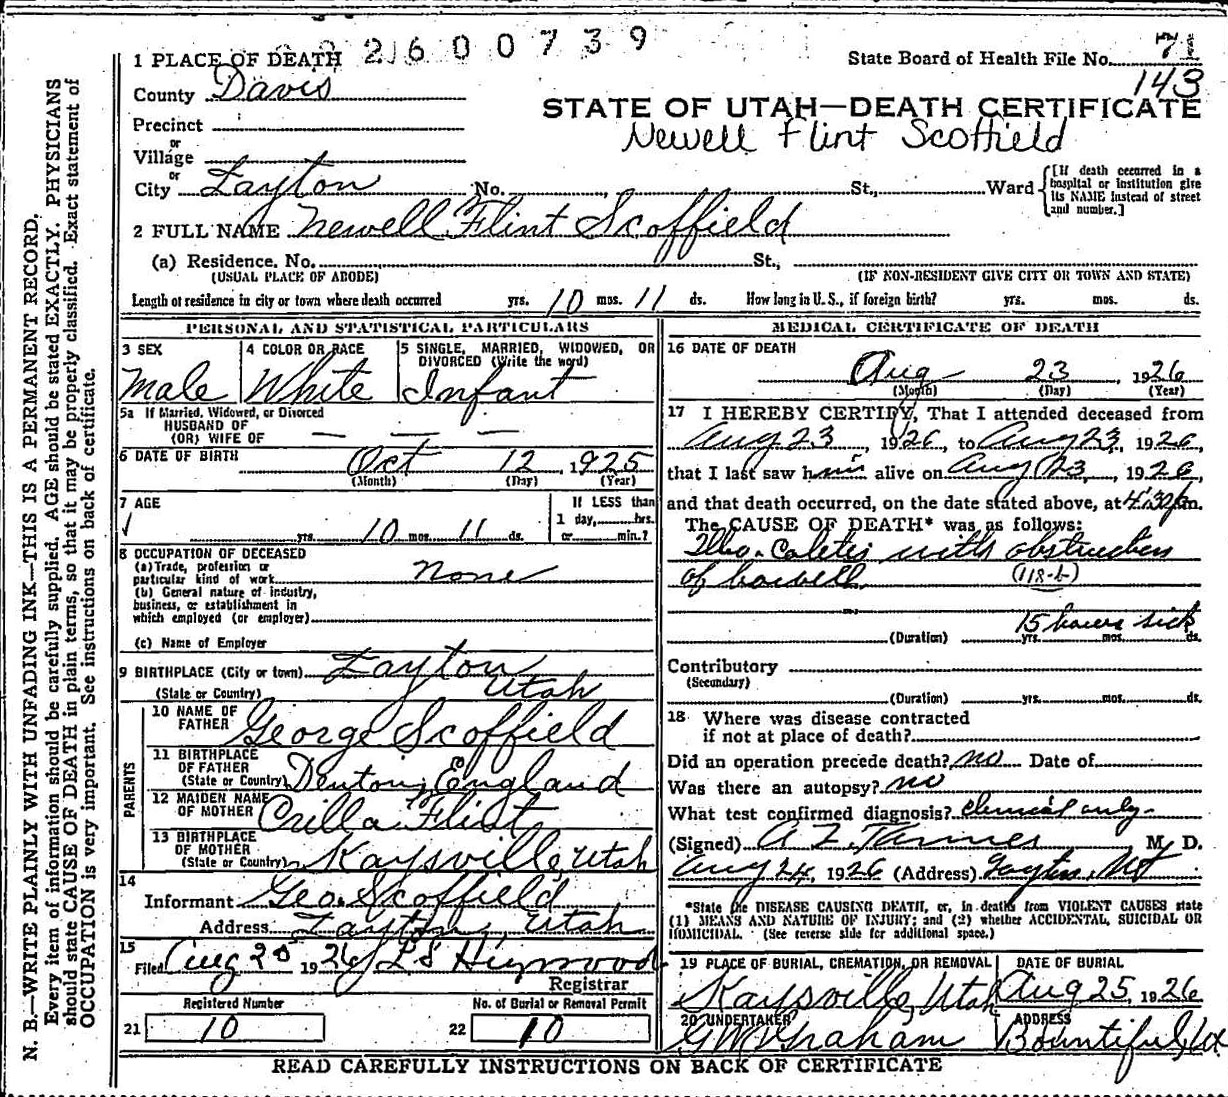 2600739
1 PLACE OF DEATH
State Board of Health File No. 71
143
County Davis
STATE OF UTAH—DEATH CERTIFICATE
Precinct
Newell Flint Scoffield
or
Village
or
City Layton No. , St., Ward
[If death occurred in a hospital or institution give its NAME instead of street and number.]
2 FULL NAME Newell Flint Scoffield
(a) Residence. No. St.,
(USUAL PLACE OF ABODE) (IF NON-RESIDENT GIVE CITY OR TOWN AND STATE)
Length of residence in city or town where death occurred yrs. 10 mos. 11 ds. How long in U. S., if foreign birth? yrs. mos. ds.
PERSONAL AND STATISTICAL PARTICULARS
3 SEX 4 COLOR OR RACE 5 SINGLE, MARRIED, WIDOWED, OR
DIVORCED (Write the word)
Male White Infant
5a If Married, Widowed, or Divorced
HUSBAND OF
(OR) WIFE OF — — —
6 DATE OF BIRTH Oct 12, 1925
(Month) (Day) (Year)
7 AGE If LESS than
1 day, hrs.
10 mos. 11 ds. or min.?
yrs.
8 OCCUPATION OF DECEASED
(a) Trade, profession or
particular kind of work none
(b) General nature of industry,
business, or establishment in
which employed (or employer)
(c) Name of Employer
9 BIRTHPLACE (City or town) Layton
(State or Country) Utah
PARENTS
10 NAME OF
FATHER George Scoffield
11 BIRTHPLACE
OF FATHER
(State or Country) Denton, England
12 MAIDEN NAME
OF MOTHER Crilla Flint
13 BIRTHPLACE
OF MOTHER
(State or Country) Kaysville, Utah
14
Informant Geo. Scoffield
Address Layton, Utah
15
Filed Aug 25 1926 L S
Registrar
Registered Number No. of Burial or Removal Permit
21 10 22 10
MEDICAL CERTIFICATE OF DEATH
16 DATE OF DEATH
Aug 23, 1926
(Month) (Day) (Year)
17 I HEREBY CERTIFY, That I attended deceased from
Aug 23, 1926, to Aug 23, 1926,
that I last saw him alive on Aug 23, 1926,
and that death occurred, on the date stated above, at 4:30 pm.
The CAUSE OF DEATH* was as follows:
Ileo-Coletis with obstruction
of bowell (118-b)
15 hours sick
(Duration) yrs. mos. ds.
Contributory
(Secondary)
(Duration) yrs. mos. ds.
18 Where was disease contracted
if not at place of death?
Did an operation precede death? no Date of
Was there an autopsy? no
What test confirmed diagnosis? clinical only-
(Signed) A Z Tanner M. D.
Aug 24, 1926 (Address) Layton, Ut
*State the DISEASE CAUSING DEATH, or, in deaths from VIOLENT CAUSES state
(1) MEANS AND NATURE OF INJURY; and (2) whether ACCIDENTAL, SUICIDAL OR
HOMICIDAL. (See reverse side for additional space.)
19 PLACE OF BURIAL, CREMATION, OR REMOVAL DATE OF BURIAL
Kaysville, Utah Aug 25, 1926
20 UNDERTAKER ADDRESS
G W Graham Bountiful, Ut
READ CAREFULLY INSTRUCTIONS ON BACK OF CERTIFICATE
N. B.—WRITE PLAINLY WITH UNFADING INK—THIS IS A PERMANENT RECORD.
Every item of information should be carefully supplied. AGE should be stated EXACTLY. PHYSICIANS
should state CAUSE OF DEATH in plain terms, so that it may be properly classified. Exact statement of
OCCUPATION is very important. See instructions on back of certificate.